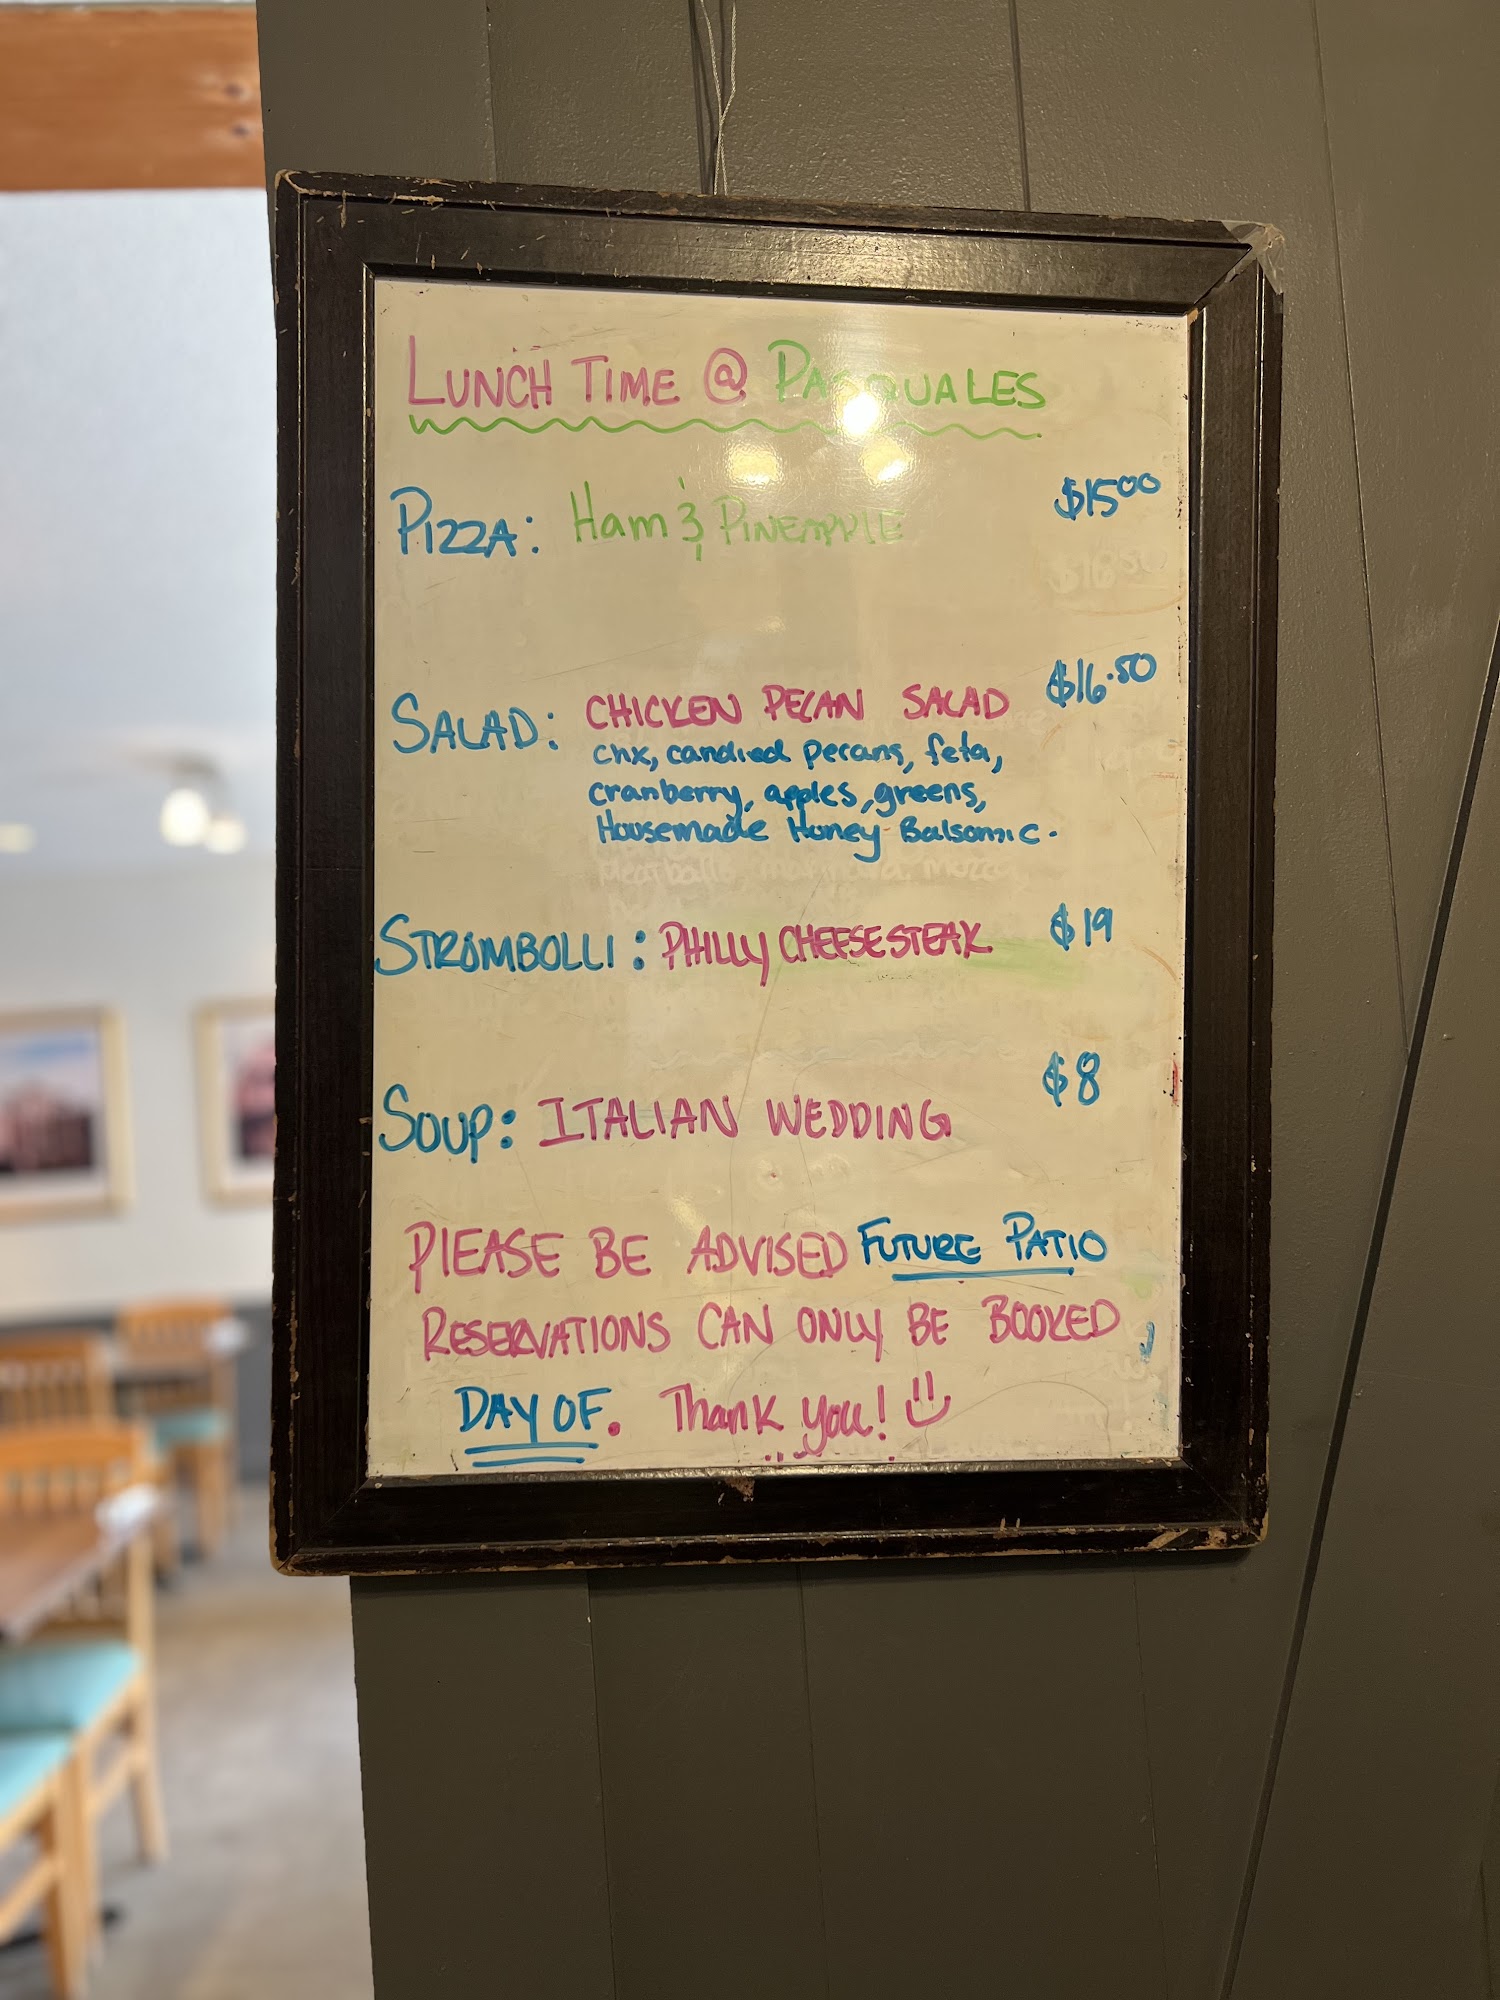 LUNCH TIME @ PASQUALES
PIZZA: Ham & PINEAPPLE $15.00
SALAD: CHICKEN PECAN SALAD $16.50
chx, candied pecans, feta,
cranberry, apples, greens,
Housemade Honey Balsamic.
STROMBOLLI: PHILLY CHEESESTEAK $19
SOUP: ITALIAN WEDDING $8
PLEASE BE ADVISED FUTURE PATIO
RESERVATIONS CAN ONLY BE BOOKED
DAY OF. Thank you!